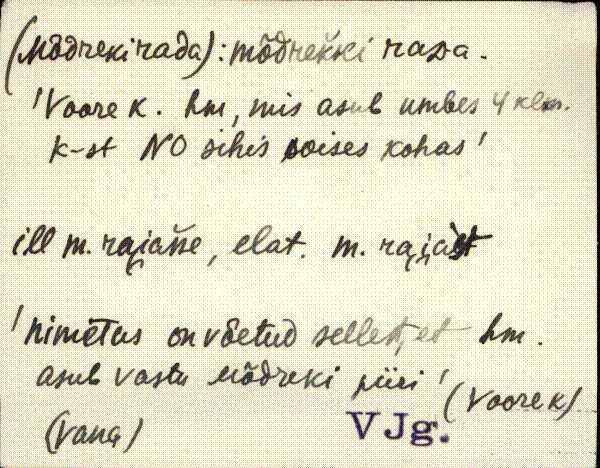 (Mõdrekirada): mõdrekki rada.
'Voore k. hm, mis asub umbes 4 klm.
k-st NO sihis soises kohas'
ill m. rajasse, elat. m. rajast
'nimetus on võetud sellest, et hm.
asub vastu Mõdreki piiri' (Voore k)
(vana) VJg.